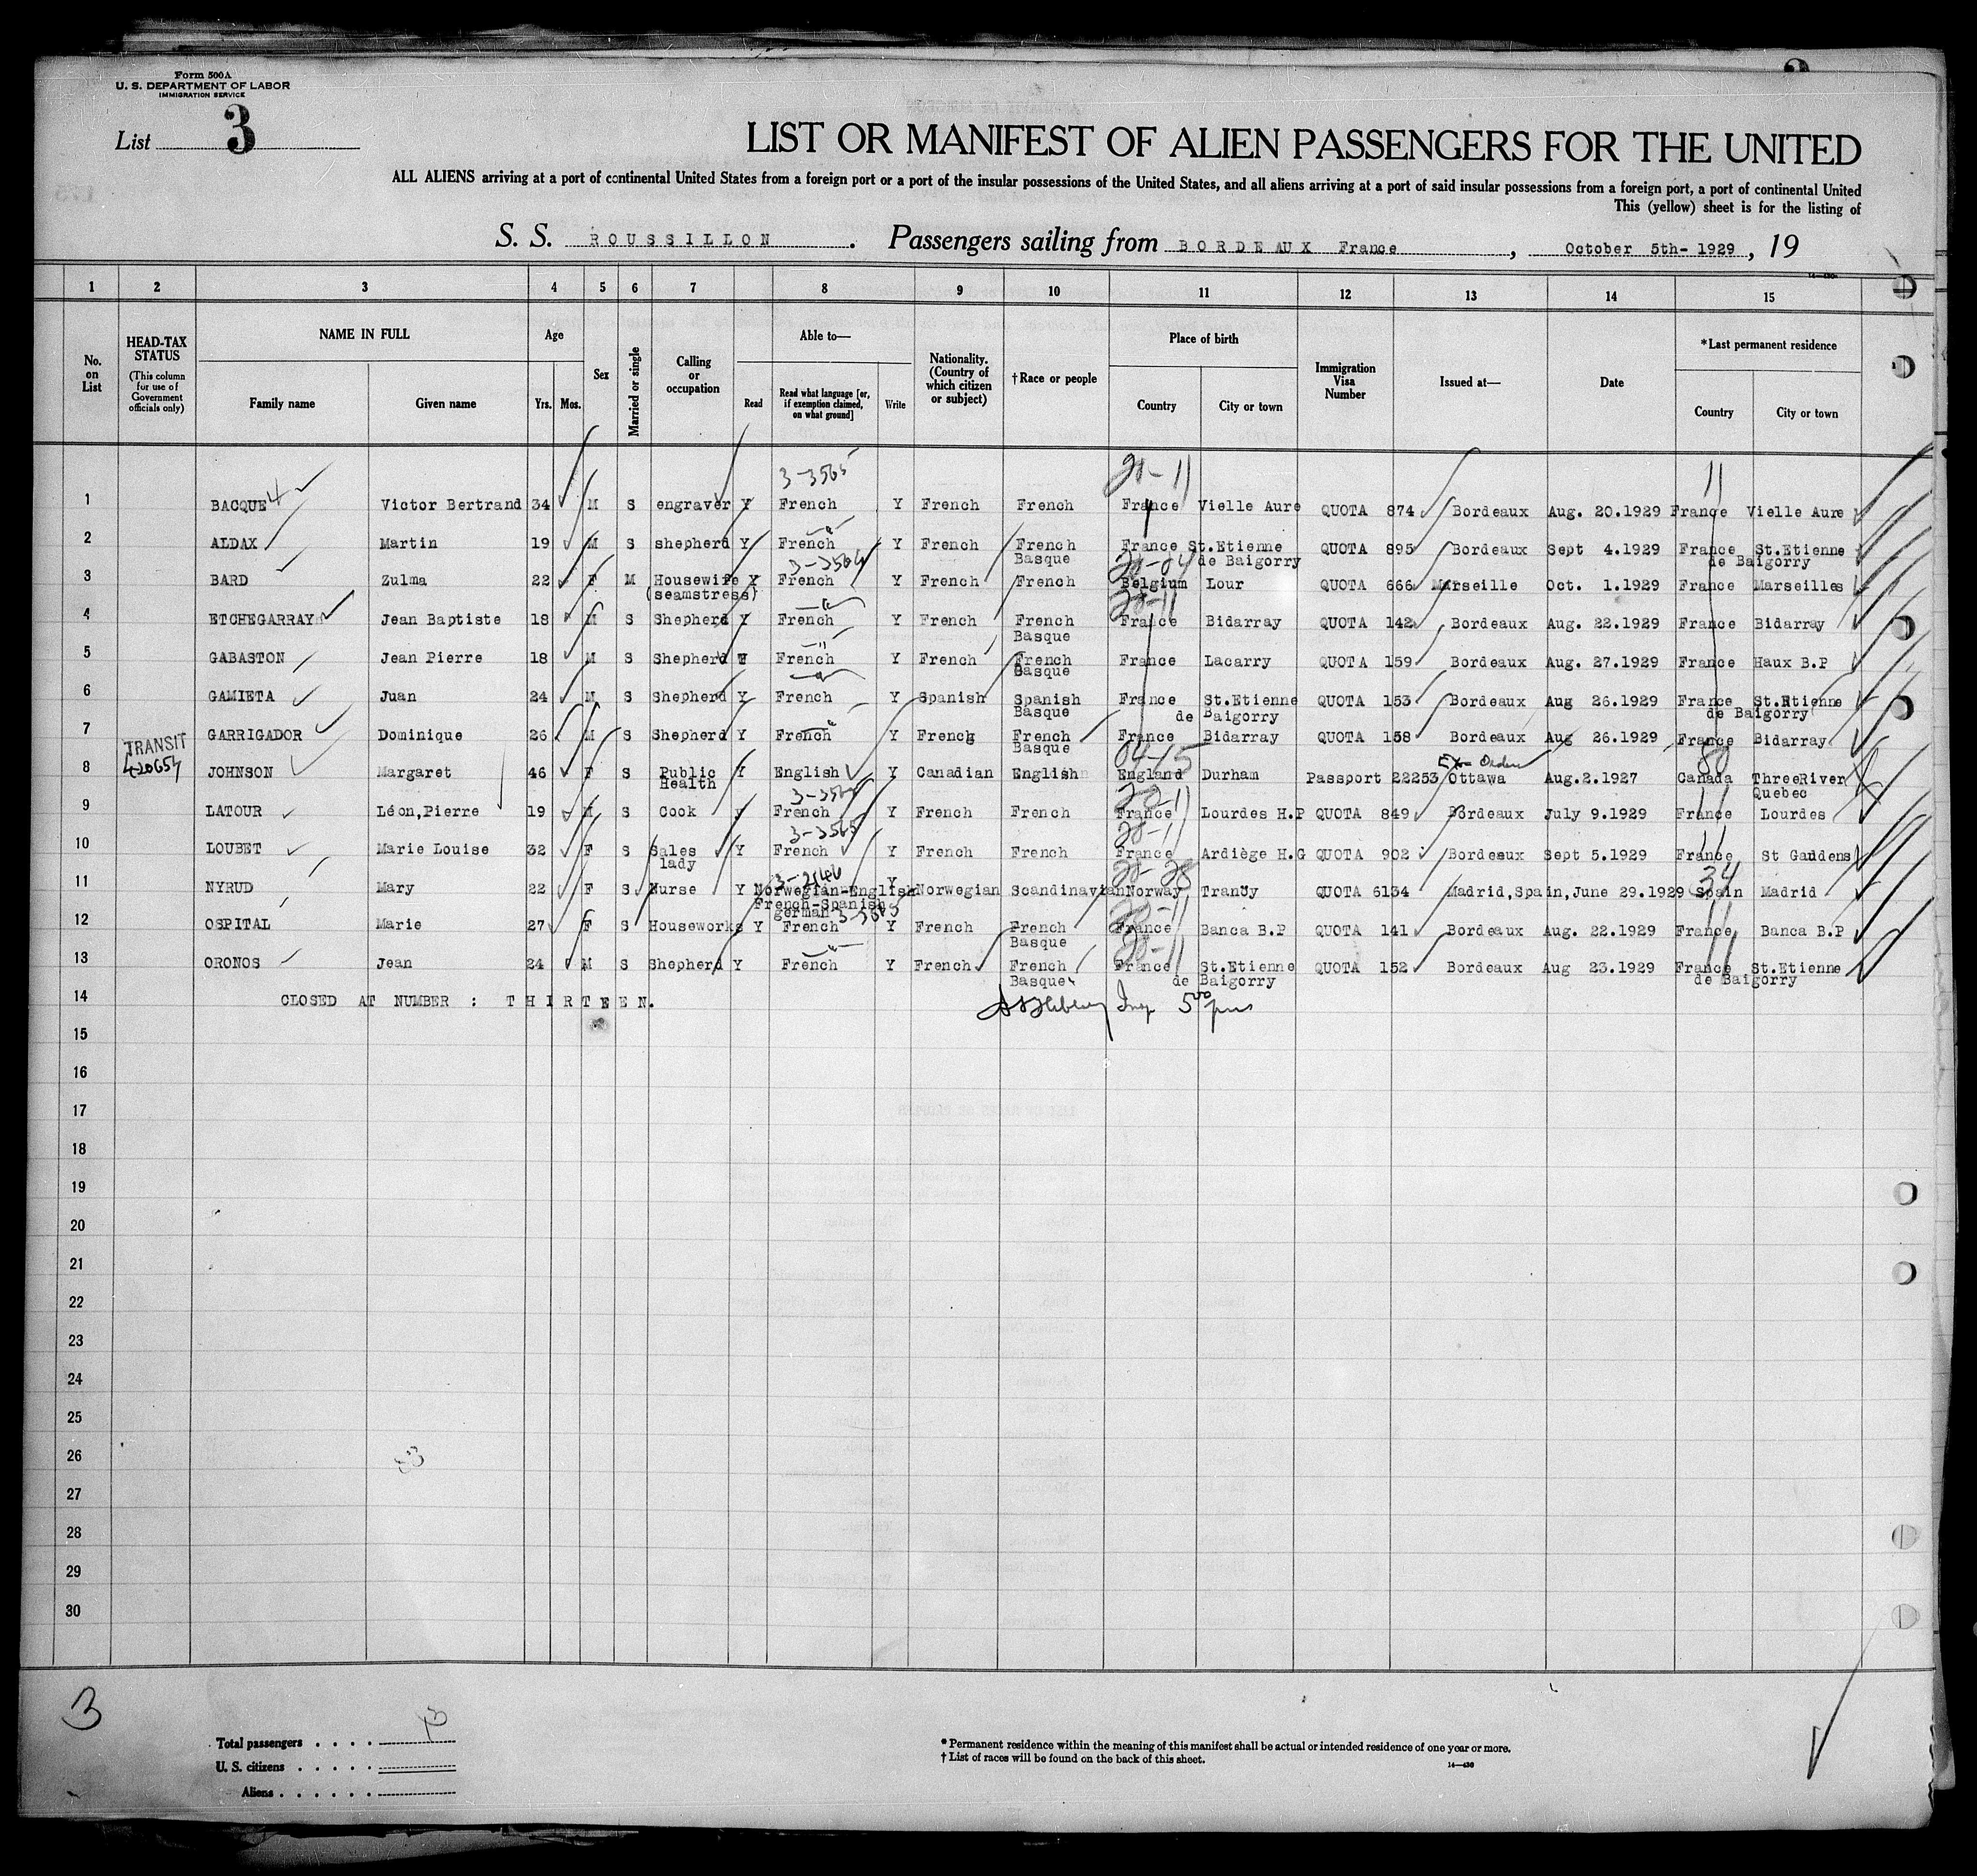 Form 500A
U. S. DEPARTMENT OF LABOR
IMMIGRATION SERVICE
List 3
LIST OR MANIFEST OF ALIEN PASSENGERS FOR THE UNITED
ALL ALIENS arriving at a port of continental United States from a foreign port or a port of the insular possessions of the United States, and all aliens arriving at a port of said insular possessions from a foreign port, a port of continental United
This (yellow) sheet is for the listing of
S. S. ROUSSILLON. Passengers sailing from BORDEAUX France, October 5th- 1929, 19
1 2 3 4 5 6 7 8 9 10 11 12 13 14 15
No. on List
HEAD-TAX STATUS (This column for use of Government officials only)
NAME IN FULL
Family name Given name
Age
Yrs. Mos.
Sex
Married or single
Calling or occupation
Able to—
Read Read what language [or, if exemption claimed, on what ground] Write
Nationality. (Country of which citizen or subject)
†Race or people
Place of birth
Country City or town
Immigration Visa Number
Issued at—
Date
*Last permanent residence
Country City or town
3-3565 20-11 11
1 BACQUE 4 Victor Bertrand 34 M S engraver Y French Y French French France Vielle Aure QUOTA 874 Bordeaux Aug. 20.1929 France Vielle Aure
2 ALDAX Martin 19 M S shepherd Y French Y French French Basque France St.Etienne de Baigorry QUOTA 895 Bordeaux Sept 4.1929 France St.Etienne de Baigorry
3-3564
3 BARD Zulma 22 F M Housewife (seamstress) Y French Y French French Belgium Lour QUOTA 666 Marseille Oct. 1.1929 France Marseilles
20-11
4 ETCHEGARRAY Jean Baptiste 18 M S Shepherd Y French Y French French Basque France Bidarray QUOTA 142 Bordeaux Aug. 22.1929 France Bidarray
5 GABASTON Jean Pierre 18 M S Shepherd Y French Y French French Basque France Lacarry QUOTA 159 Bordeaux Aug. 27.1929 France Haux B.P
6 GAMIETA Juan 24 M S Shepherd Y French Y Spanish Spanish Basque France St.Etienne de Baigorry QUOTA 153 Bordeaux Aug 26.1929 France St.Etienne de Baigorry
7 GARRIGADOR Dominique 26 M S Shepherd Y French Y French French Basque France Bidarray QUOTA 158 Bordeaux Aug 26.1929 France Bidarray
TRANSIT
04-15
8 JOHNSON Margaret 46 F S Public Health Y English Y Canadian English England Durham Passport 22253 Ottawa Aug.2.1927 Canada ThreeRiver Quebec
20-11 11
9 LATOUR Léon,Pierre 19 M S Cook Y French Y French French France Lourdes H.P QUOTA 849 Bordeaux July 9.1929 France Lourdes
3-3565 20-11 11
10 LOUBET Marie Louise 32 F S Sales lady Y French Y French French France Ardiège H.G QUOTA 902 Bordeaux Sept 5.1929 France St Gaudens
20-28 34
11 NYRUD Mary 22 F S Nurse Y Norwegian-English French-Spanish german Y Norwegian Scandinavian Norway Trancy QUOTA 6134 Madrid,Spain,June 29.1929 Spain Madrid
3-3565 20-11 11
12 OSPITAL Marie 27 F S Houseworks Y French Y French French Basque France Banca B.P QUOTA 141 Bordeaux Aug. 22.1929 France Banca B.P
20-11 11
13 ORONOS Jean 24 M S Shepherd Y French Y French French Basque France St.Etienne de Baigorry QUOTA 152 Bordeaux Aug 23.1929 France St.Etienne de Baigorry
14 CLOSED AT NUMBER : THIRTEEN.
15
16
17
18
19
20
21
22
23
24
25
26
27
28
29
30
3
Total passengers 13
U. S. citizens
Aliens
* Permanent residence within the meaning of this manifest shall be actual or intended residence of one year or more.
† List of races will be found on the back of this sheet.
14—430